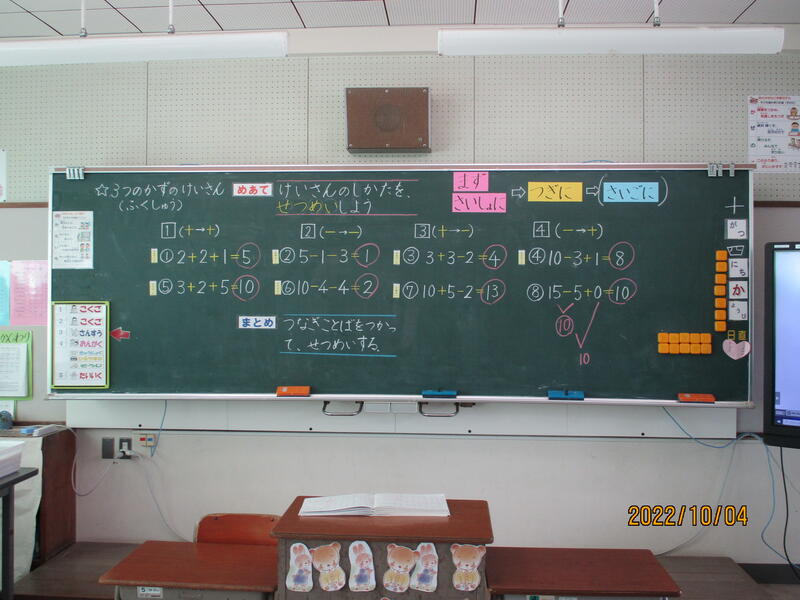 ☆3つのかずのけいさん
(ふくしゅう)
めあて
けいさんのしかたを、
せつめいしよう
まず
さいしょに
⇨ つぎに ⇨ (さいごに)
1 (+→+)
2 (-→-)
3 (+→-)
4 (-→+)
① 2+2+1=5
② 5-1-3=1
③ 3+3-2=4
④ 10-3+1=8
⑤ 3+2+5=10
⑥ 10-4-4=2
⑦ 10+5-2=13
⑧ 15-5+0=10
10
10
まとめ
つなぎことばをつかっ
て、せつめいする。
1 こくご
2 こくご
3 さんすう
4 おんがく
5 たいいく
がつ
にち
か
ようび
日直
5
2022/10/04